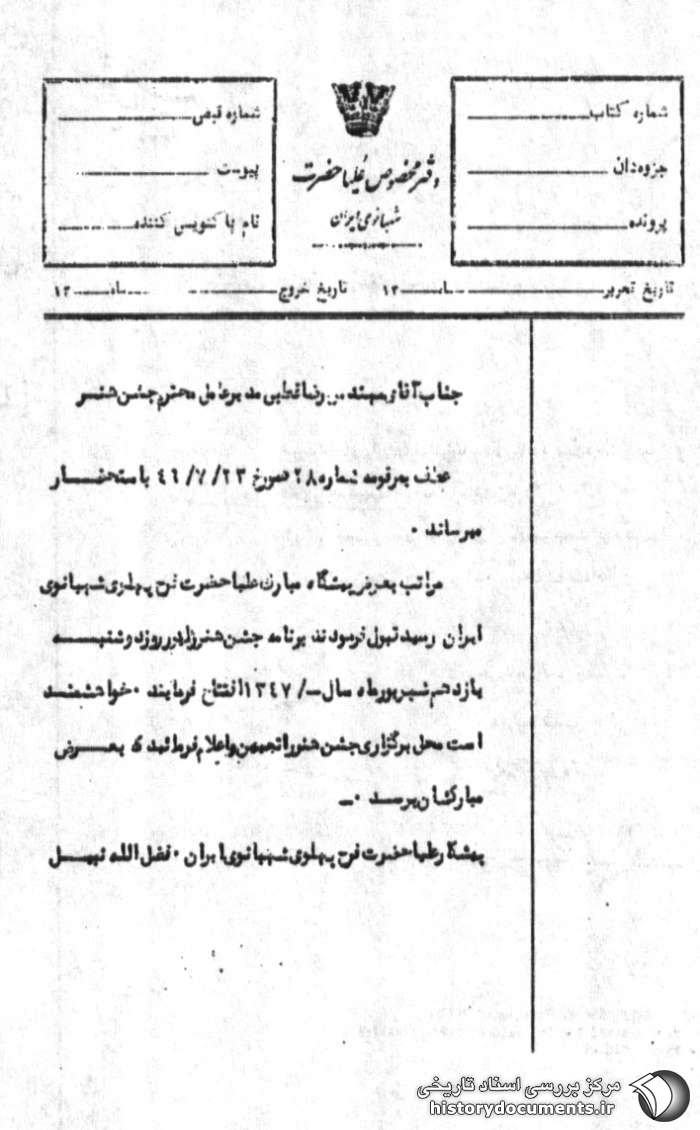 شماره کتاب
جزوه‌دان
پرونده
دفتر مخصوص علیاحضرت
شهبانوی ایران
شماره قبض
پیوست
نام پاکنویس کننده
تاریخ تحریر ماه ۱۳ تاریخ خروج ماه ۱۳
جناب آقای مهندس رضا قطبی مدیرعامل محترم جشن هنر
عطف به مرقومه شماره ۲۸ مورخ ۲۳/ ۷/ ۴۶ باستحضار
میرساند ۰
مراتب بعرض پیشگاه مبارک علیاحضرت فرح پهلوی شهبانوی
ایران رسید قبول فرمودند برنامه جشن هنر را در روز دوشنبه
یازدهم شهریورماه سال -/ ۱۳۴۷ افتتاح فرمایند ۰ خواهشمند
است محل برگزاری جشن هنر را تعیین و اعلام فرمائید تا بعرض
مبارکشان برسد ۰ـ
پیشکار علیاحضرت فرح پهلوی شهبانوی ایران ۰ فضل الله نبیل
مرکز بررسی اسناد تاریخی
historydocuments.ir